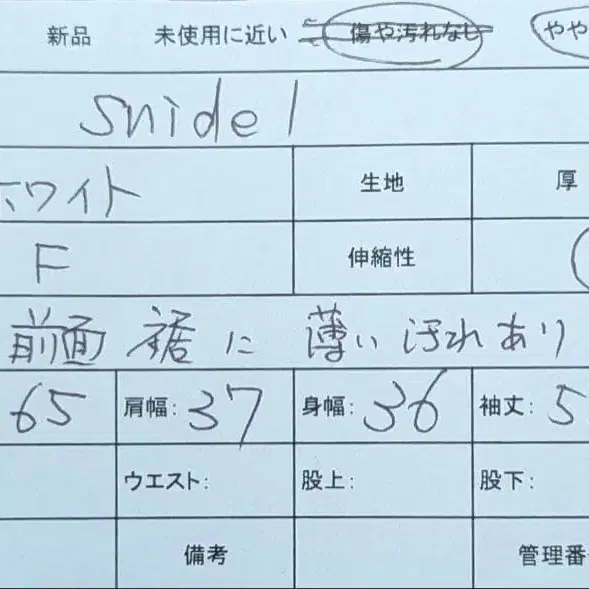 新品 未使用に近い 傷や汚れなし やや
snidel
ホワイト 生地 厚
F 伸縮性
前面 裾に 薄い 汚れあり
65 肩幅: 37 身幅: 36 袖丈: 5
ウエスト: 股上: 股下:
備考 管理番